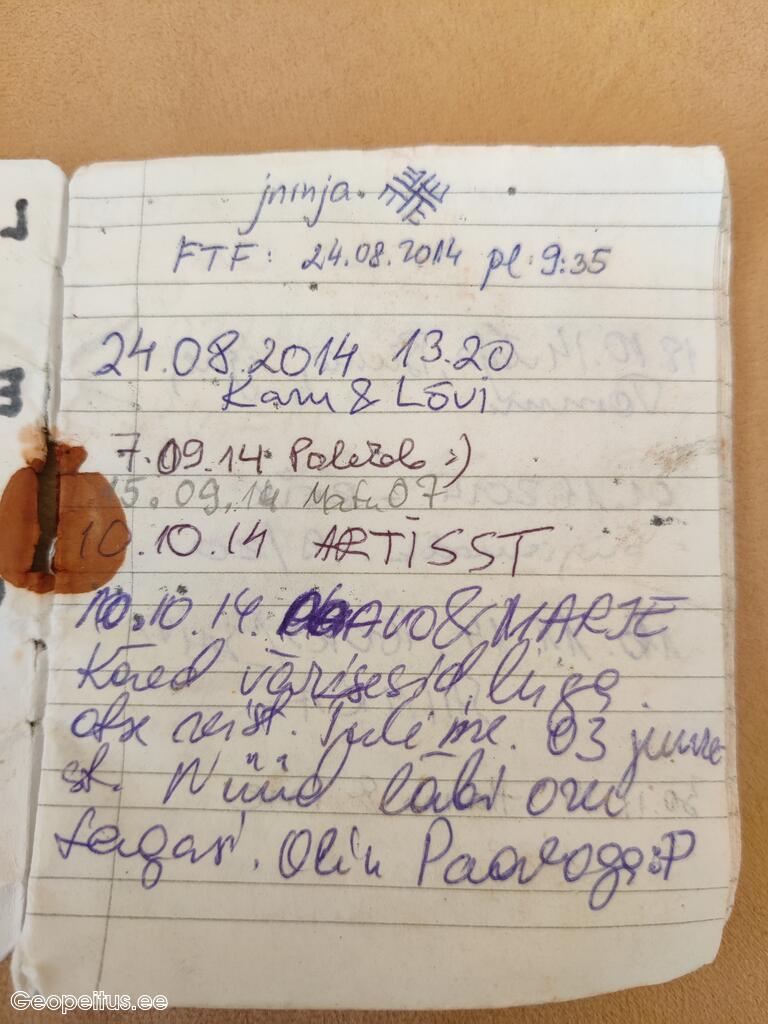 jninja.
FTF: 24.08.2014 pl 9:35
24.08.2014 13.20
Karu & Lõvi
7.09.14 :)
15.09.14 Matu07
10.10.14 ARTISST
10.10.14. &MARJE
Käed värisesid, liiga
Tulime. 03 juure
st. Nüüd läbi oru
tagasi. Olin Paavoga:P
Geopeitus.ee